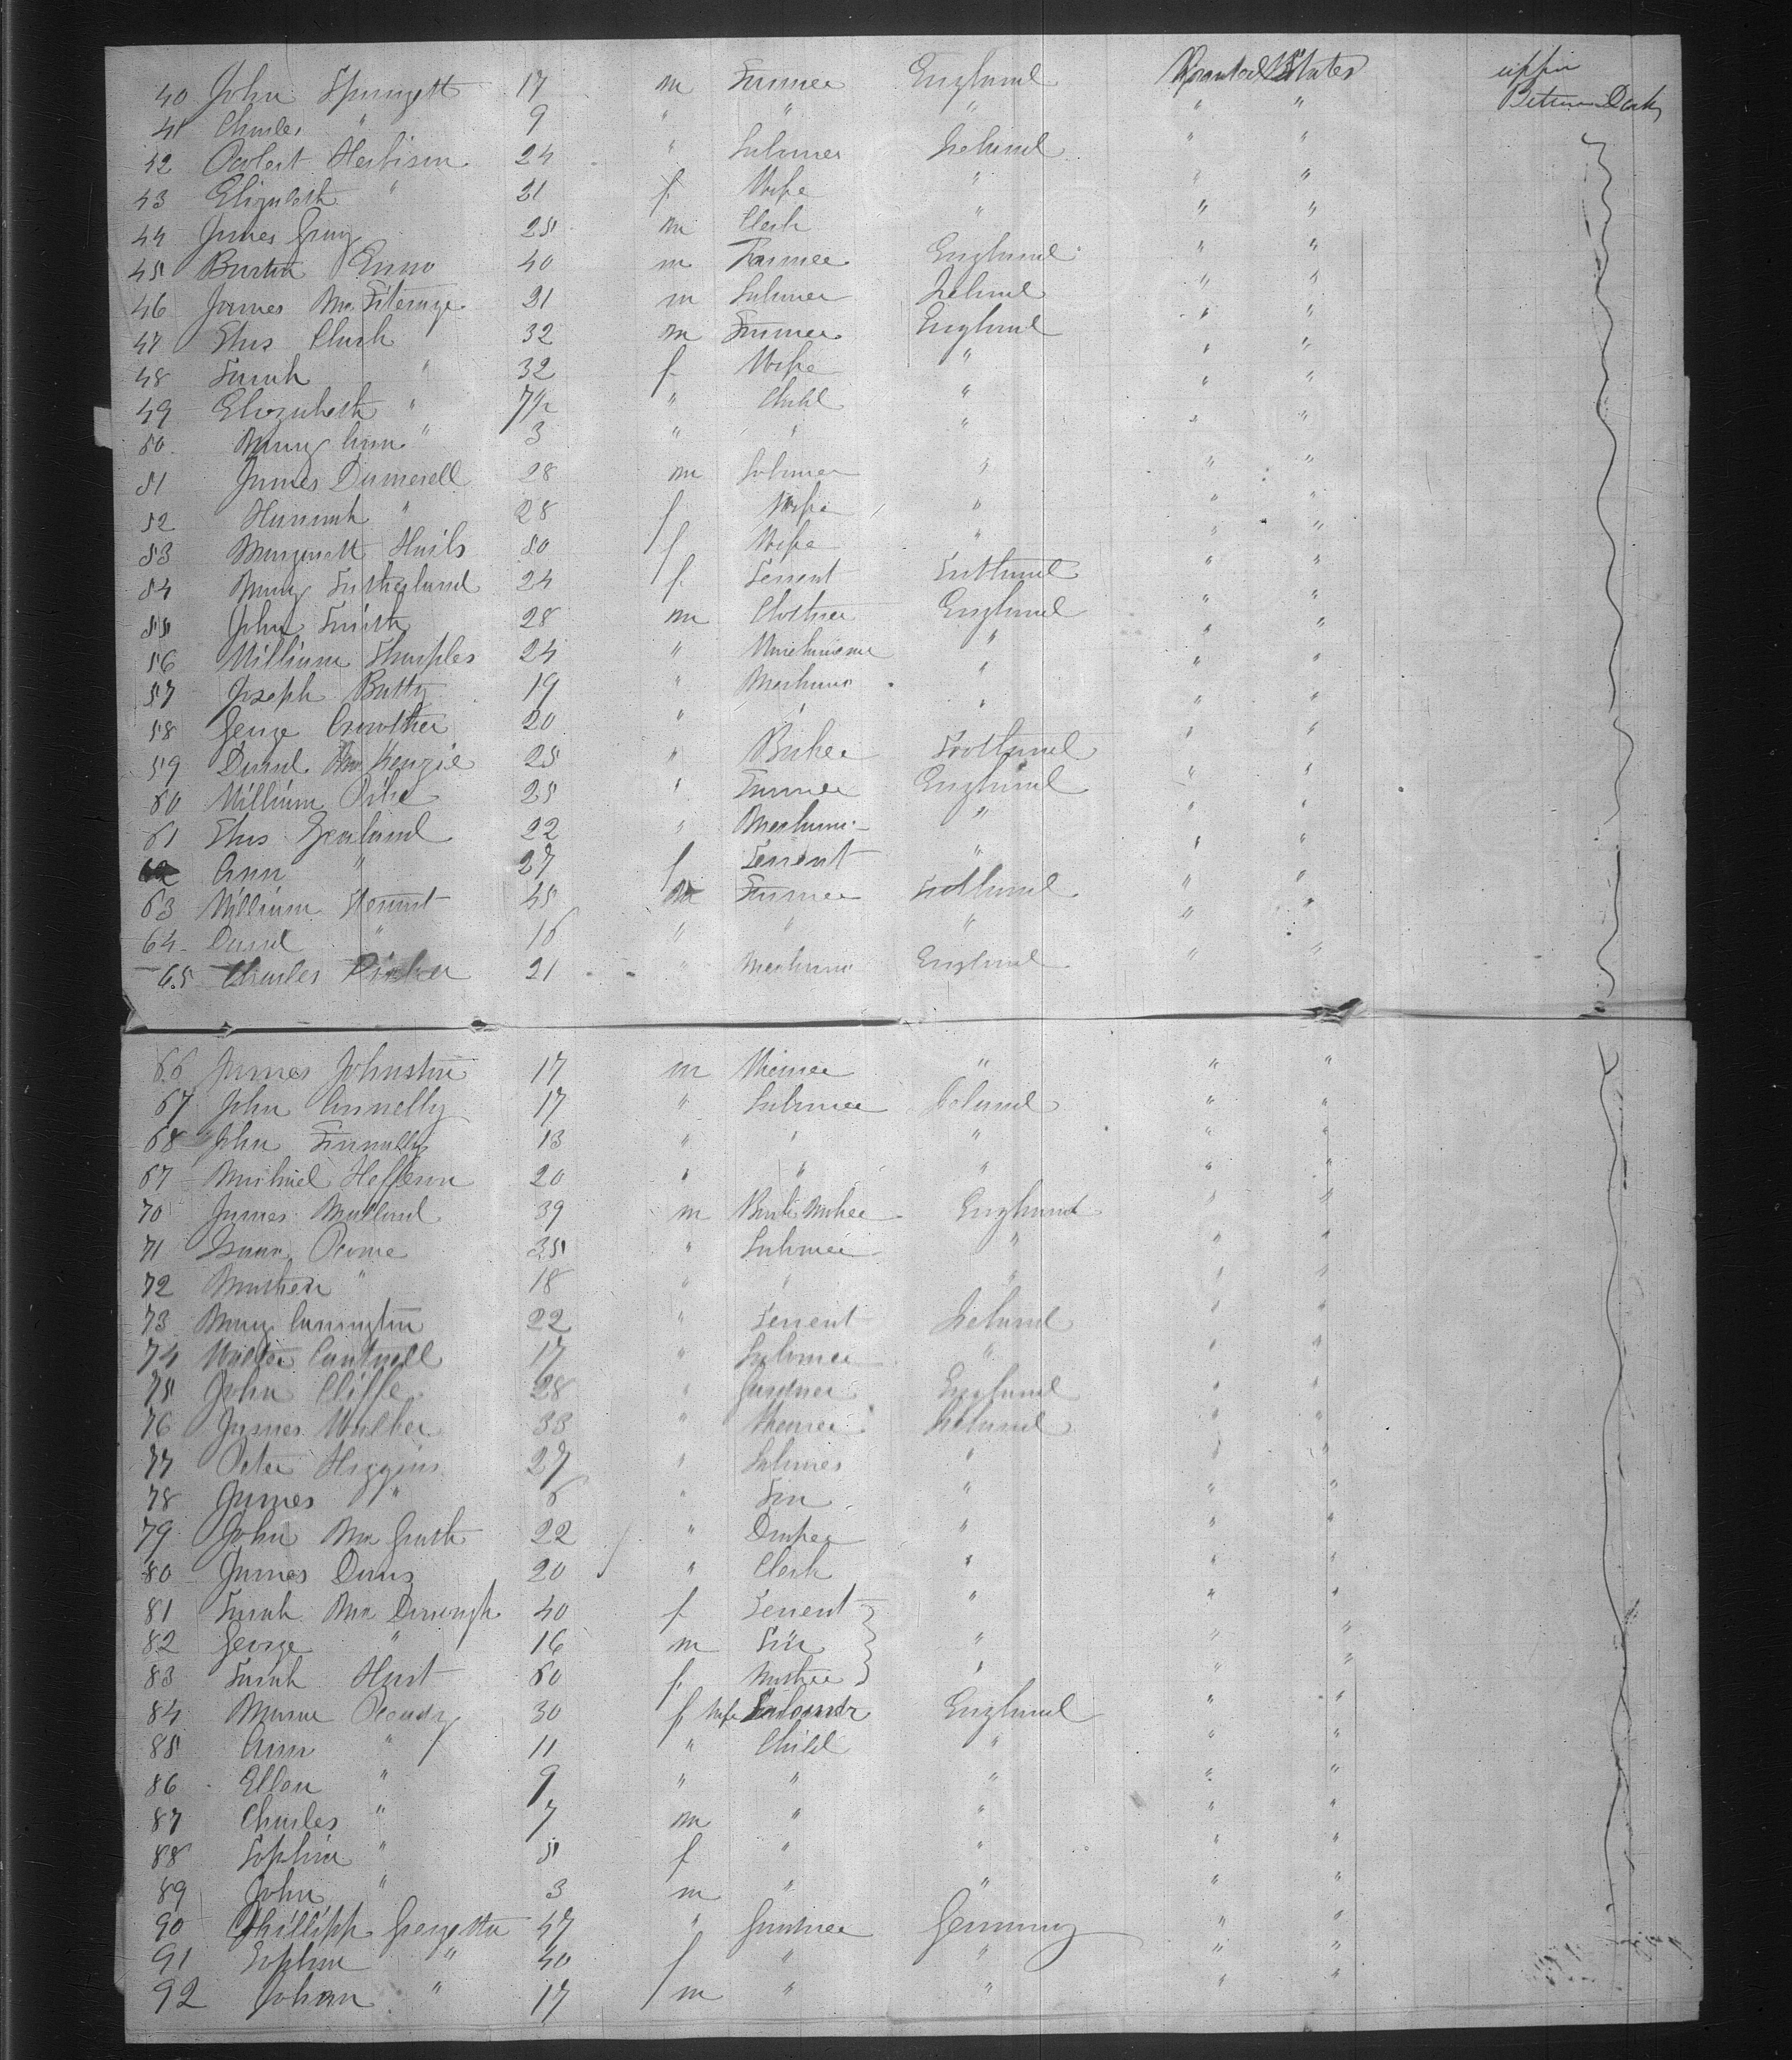 40 John Spungett 17 m Farmer England United States uppr
41 Charles " 9 " " " " " Between Decks
42 Robert Herbison 24 " Labourer Ireland " "
43 Elizabeth " 21 f Wife " " "
44 James Gray 25 m Clerk " " "
45 Burton 40 m Farmer England " "
46 James 21 m Labourer Ireland " "
47 Thos Clark 32 m Farmer England " "
48 Sarah " 32 f Wife " " "
49 Elizabeth " 7½ " Child " " "
50 Mary Ann " 3 " " " " "
51 James Dumerell 28 m Labourer " " "
52 Hannah " 28 f Wife " " "
53 Margarett 50 f Wife " " "
54 Mary Sutherland 24 f Servent Scotland " "
55 John Smith 28 m Clothier England " "
56 William Sharples 24 " " " "
57 Joseph Batty 19 " Mechanic " " "
58 George Crowther 20 " " " " "
59 Daniel Mc Kenzie 25 " Baker Scotland " "
60 William Pike 25 " Farmer England " "
61 Thos Yealand 22 " Mechanic " " "
62 Ann " 27 f Servent " " "
63 William Stewart 45 m Farmer Scotland " "
64 Daniel " 16 " " " " "
65 Charles Parker 21 " Mechanic England " "
66 James Johnston 17 m " " "
67 John Connelly 17 " Labourer Ireland " "
68 John 13 " " " " "
67 Michael Heffernn 20 " " " " "
70 James Mulland 39 m England " "
71 Isaac 35 " Labourer " " "
72 Mathew " 18 " " " " "
73 Mary Carrington 22 " Servent Ireland " "
74 Walter Cantwell 17 " Labourer " " "
75 John Cliffe 28 " Gardner England " "
76 James Walker 33 " Ireland " "
77 Peter Higgins 27 " Labourer " " "
78 James " 6 " Son " " "
79 John Mc Grath 22 " Draper " " "
80 James Davis 20 " Clerk " " "
81 Sarah Mc Donough 40 f Servent " " "
82 George " 16 m Son " " "
83 Sarah Hart 60 f Mother " " "
84 30 f Wife England " "
85 Ann " 11 " Child " " "
86 Ellen " 9 " " " " "
87 Charles " 7 m " " " "
88 Sophia " 5 f " " " "
89 John " 3 m " " " "
90 Phillipp 47 " Gardner Germany " "
91 Sophia " 40 f " " " "
92 Johan " 17 m " " " "